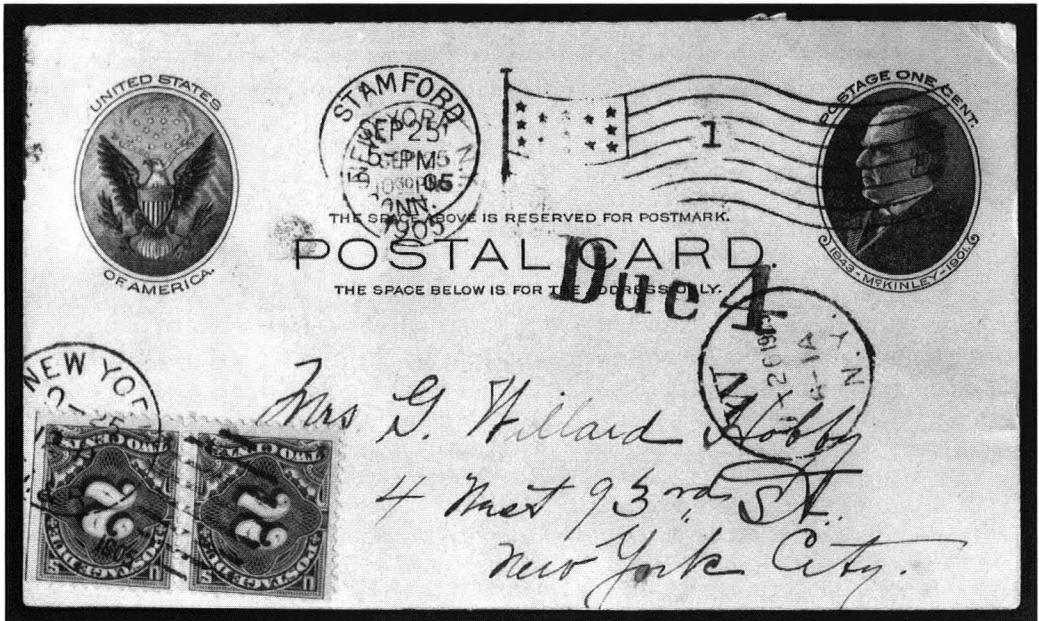 UNITED STATES
OF AMERICA.
STAMFORD
SEP 25
5 PM
05
CONN.
NEW YORK
1030 PM
1905
1
POSTAGE ONE CENT.
1843 - McKINLEY - 1901.
THE SPACE ABOVE IS RESERVED FOR POSTMARK.
POSTAL CARD.
THE SPACE BELOW IS FOR THE ADDRESS ONLY.
Due 4
N.Y.
1A
26
NEW YORK
Mrs G. Willard Hobby
4 West 93rd St.
New York City.
TWO CENTS
2
POSTAGE DUE
U S
TWO CENTS
2
POSTAGE DUE
U S